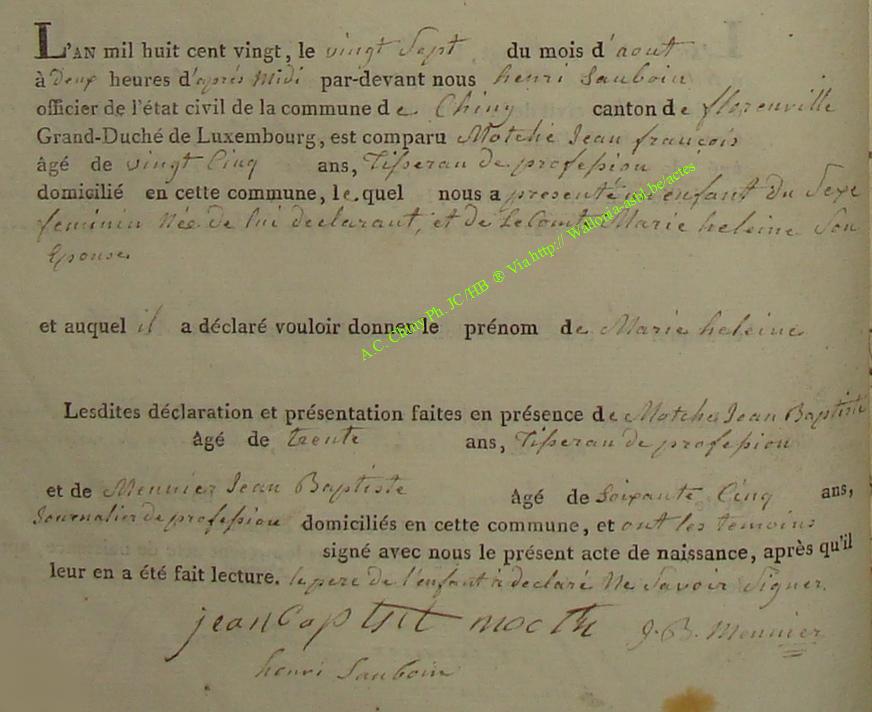 L'AN mil huit cent vingt, le vingt Sept du mois d'aout
à deux heures d'aprés Midi par-devant nous henri Sauboin
officier de l'état civil de la commune de Chiny canton de florenville
Grand-Duché de Luxembourg, est comparu Motché Jean françois
âgé de vingt Cinq ans, Tisseran de profession
domicilié en cette commune, le quel nous a presenté un enfant du Sexe
feminin Née de lui declarant, et de LeComte Marie heleine Son
Epouse
et auquel il a déclaré vouloir donner le prénom de Marie heleine
Lesdites déclaration et présentation faites en présence de Motché Jean Baptiste
âgé de trente ans, Tisseran de profession
et de Meunier Jean Baptiste âgé de Soixante Cinq ans,
Journalier de profession domiciliés en cette commune, et ont les temoins
signé avec nous le présent acte de naissance, après qu'il
leur en a été fait lecture. le pere de l'enfant à declaré Ne Savoir Signer.
jean Baptist J. B. Meunier
henri Sauboin
A.C. Chiny Ph. JC/HB ® Via http:// Wallonia-asbl.be/actes